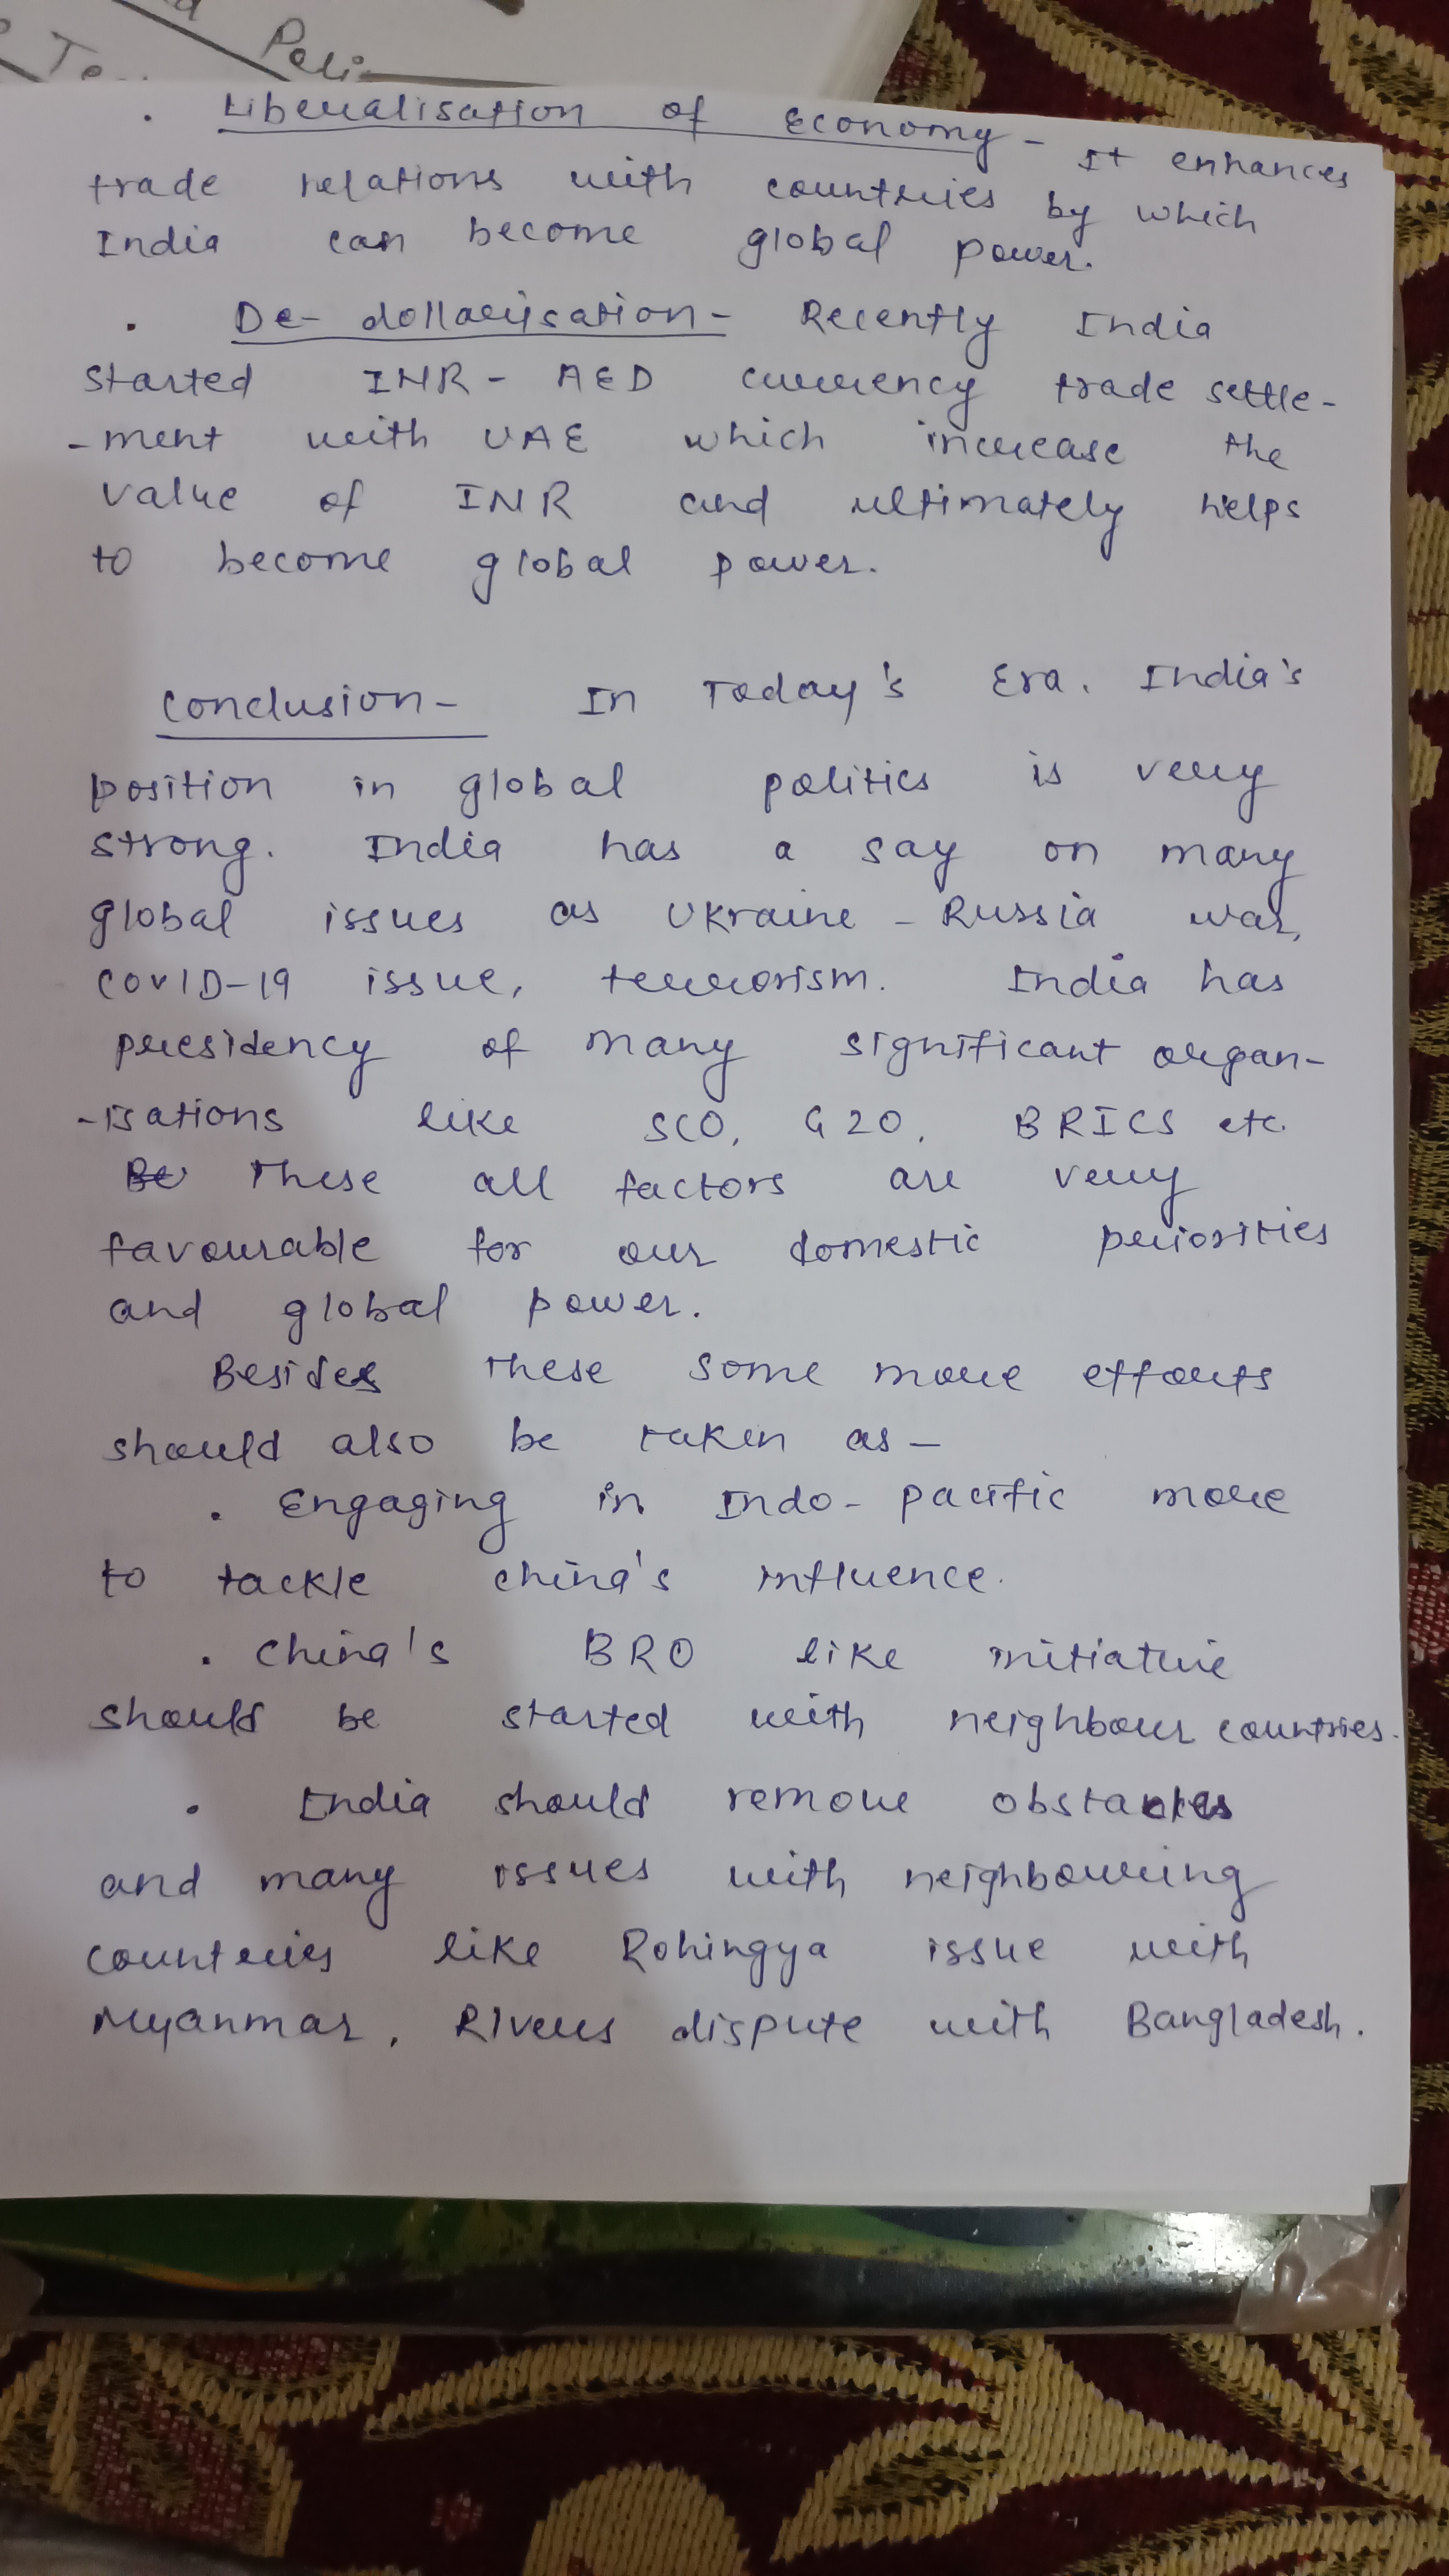 Poli
Te
. Liberalisation of Economy - It enhances
trade relations with countries by which
India can become global power.
. De- dollarisation - Recently India
started INR - AED currency trade settle-
-ment with UAE which increase the
value of INR and ultimately helps
to become global power.
Conclusion - In Today's Era. India's
position in global politics is very
strong. India has a say on many
global issues as Ukraine - Russia war,
COVID-19 issue, terrorism. India has
presidency of many significant organ-
-isations like SCO, G20, BRICS etc.
These all factors are very
favourable for our domestic periorities
and global power.
Besides these some more efforts
should also be taken as -
. Engaging in Indo- pacific more
to tackle china's influence.
. China's BRO like initiative
should be started with neighbour countries.
. India should remove obstacles
and many issues with neighbouring
countries like Rohingya issue with
Myanmar, Rivers dispute with Bangladesh.